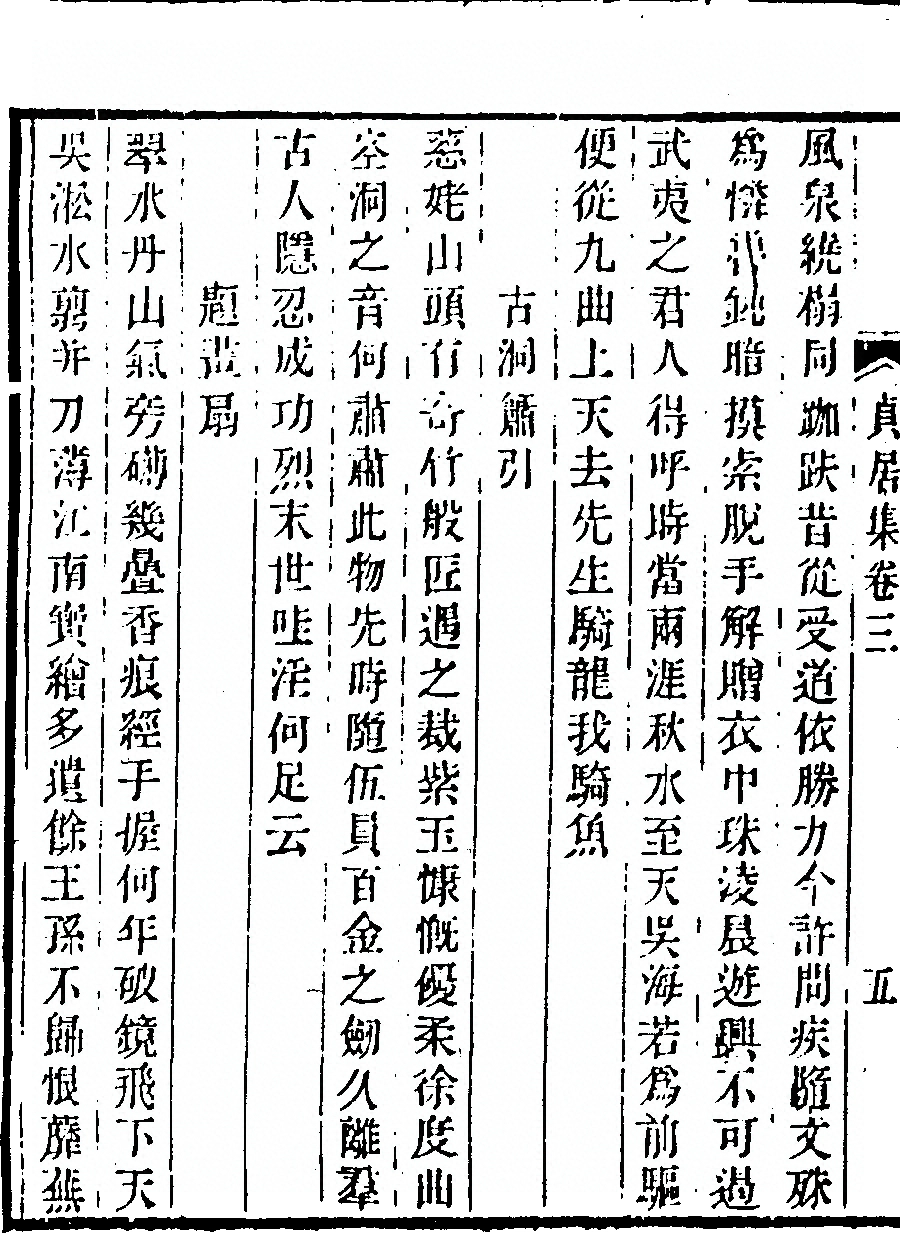 貞居集卷三
五
風泉繞榻同跏趺昔從受道依勝力今許問疾隨文殊
爲憐鈍暗摸索脫手解贈衣巾珠淩晨遊興不可過
武夷之君人得呼時當兩涯秋水至天吳海若爲前驅
便從九曲上天去先生騎龍我騎魚
古洞簫引
慈姥山頭有奇竹般匠遇之裁紫玉慷慨優柔徐度曲
空洞之音何肅肅此物先時隨伍員百金之劒久離羣
古人隱忍成功烈末世哇淫何足云
題畫扇
翠水丹山氣旁礡幾疊香痕經手握何年破鏡飛下天
吳淞水翦并刀薄江南寶繪多遺餘王孫不歸恨蘼蕪